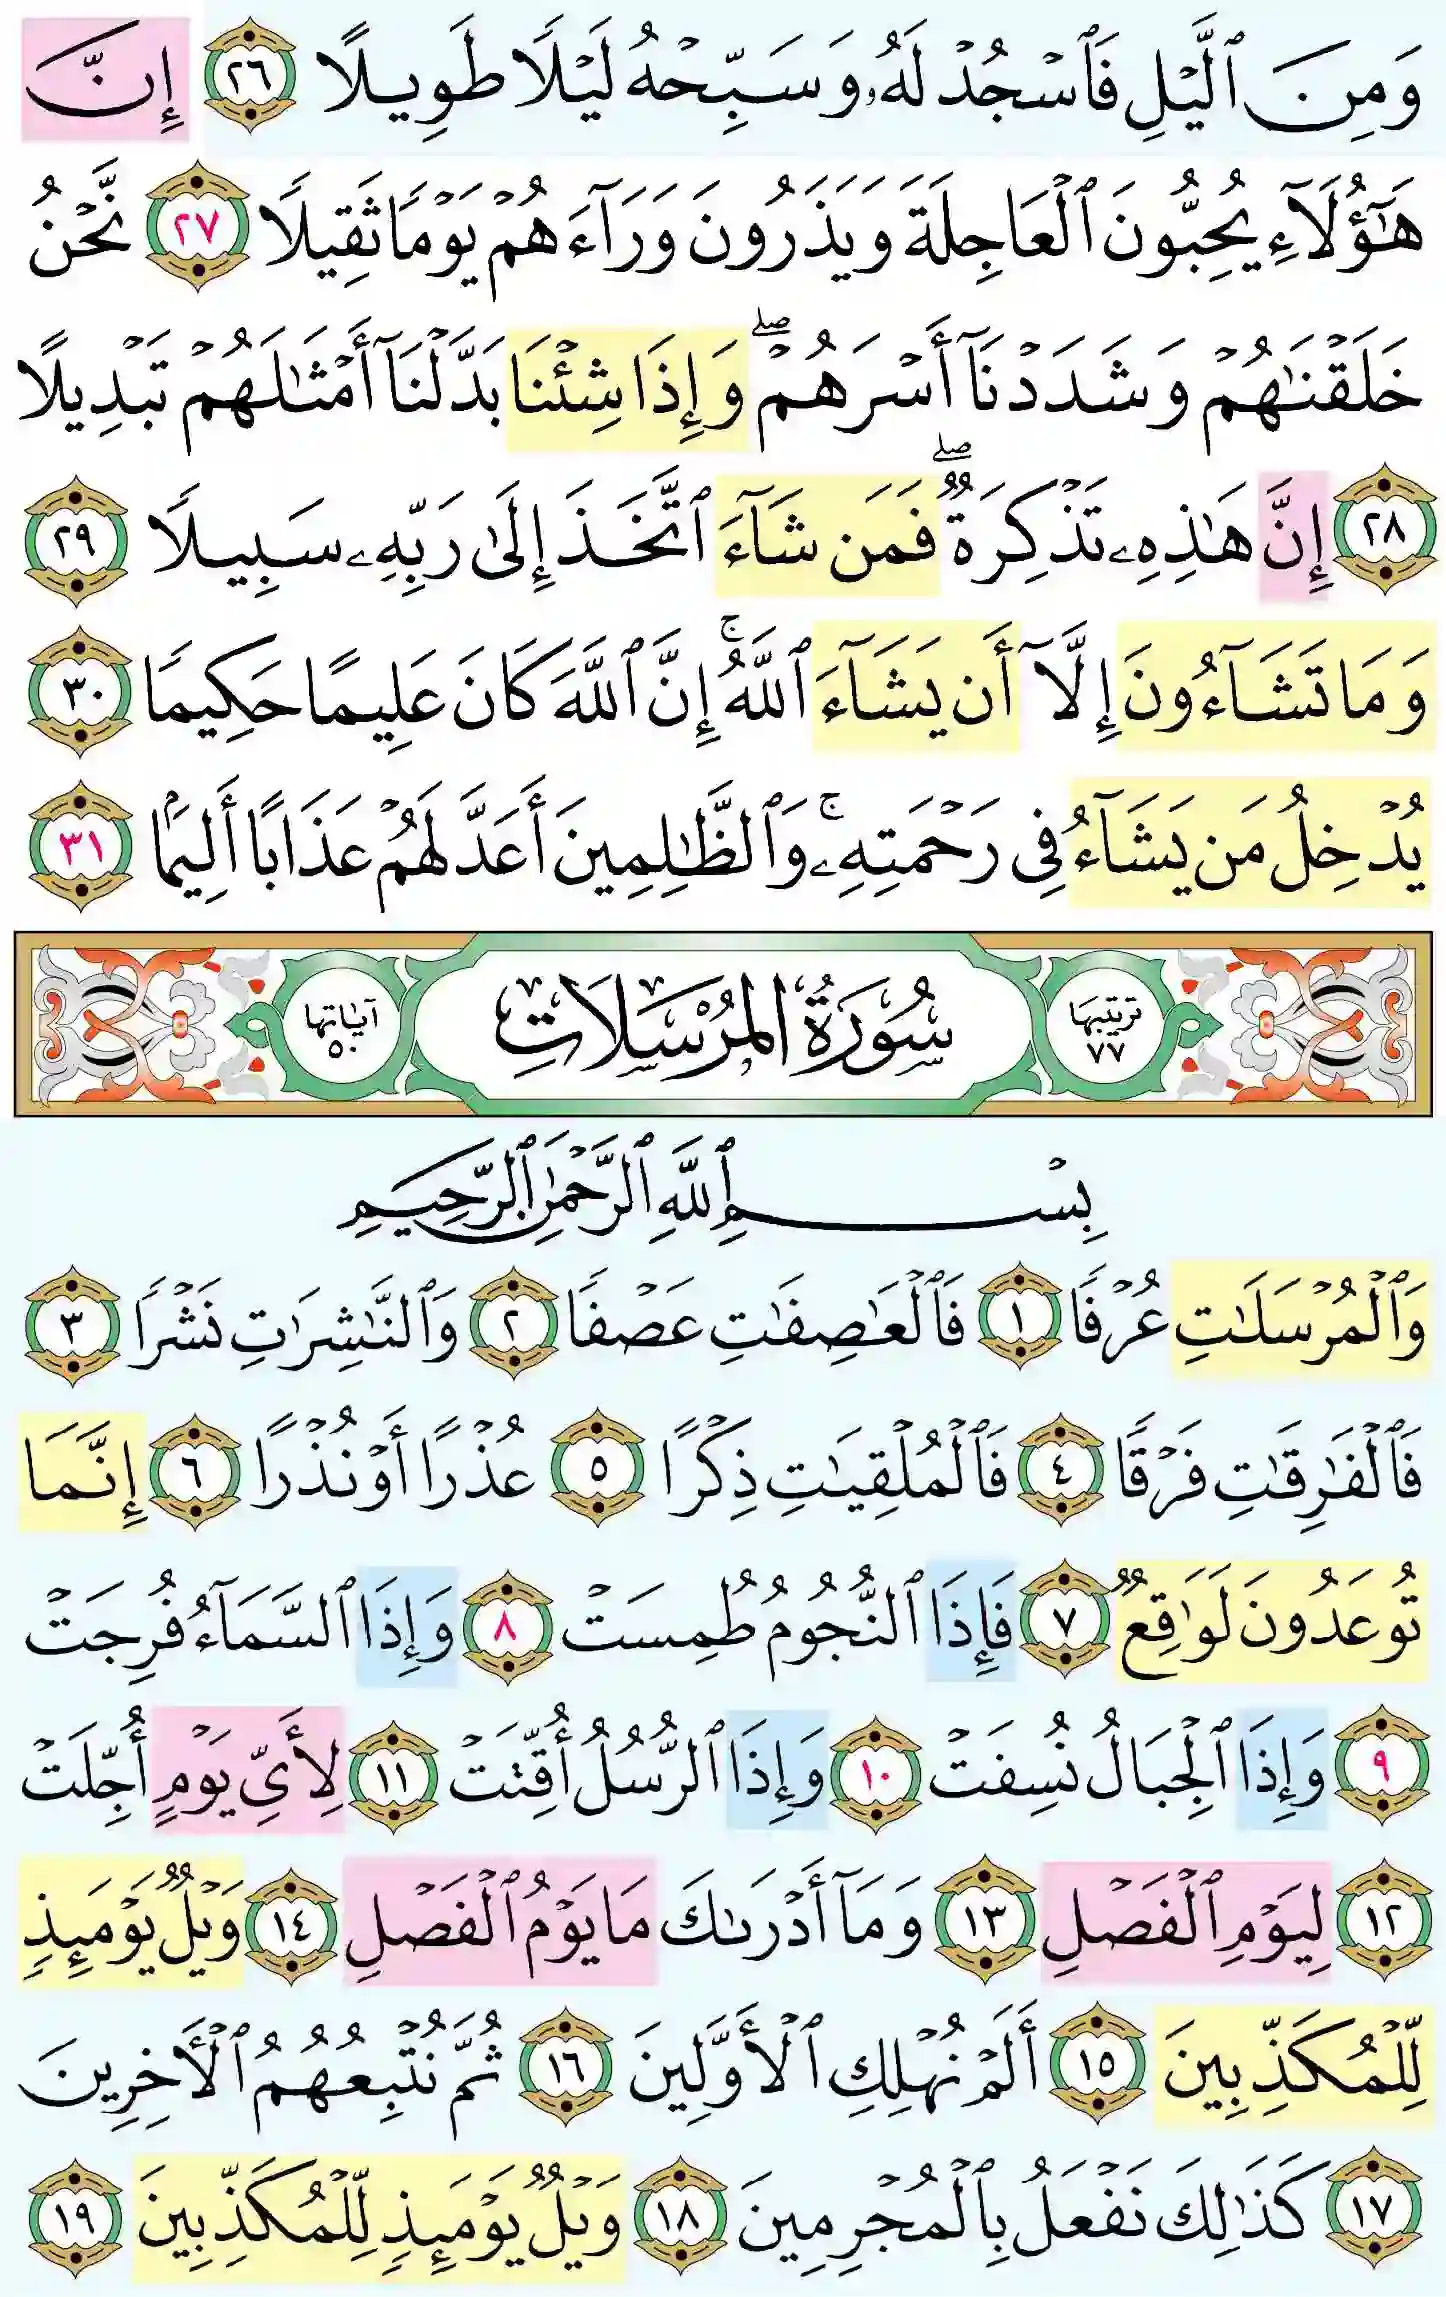 وَمِنَ ٱلَّيۡلِ فَٱسۡجُدۡ لَهُۥ وَسَبِّحۡهُ لَيۡلٗا طَوِيلًا ٢٦ إِنَّ
هَٰٓؤُلَآءِ يُحِبُّونَ ٱلۡعَاجِلَةَ وَيَذَرُونَ وَرَآءَهُمۡ يَوۡمٗا ثَقِيلٗا ٢٧ نَّحۡنُ
خَلَقۡنَٰهُمۡ وَشَدَدۡنَآ أَسۡرَهُمۡۖ وَإِذَا شِئۡنَا بَدَّلۡنَآ أَمۡثَٰلَهُمۡ تَبۡدِيلًا
٢٨ إِنَّ هَٰذِهِۦ تَذۡكِرَةٞۖ فَمَن شَآءَ ٱتَّخَذَ إِلَىٰ رَبِّهِۦ سَبِيلٗا ٢٩
وَمَا تَشَآءُونَ إِلَّآ أَن يَشَآءَ ٱللَّهُۚ إِنَّ ٱللَّهَ كَانَ عَلِيمًا حَكِيمٗا ٣٠
يُدۡخِلُ مَن يَشَآءُ فِي رَحۡمَتِهِۦۚ وَٱلظَّٰلِمِينَ أَعَدَّ لَهُمۡ عَذَابًا أَلِيمَۢا ٣١
ترتيبها ٧٧ سُورَةُ المُرْسَلَاتِ آياتها ٥٠
بِسۡمِ ٱللَّهِ ٱلرَّحۡمَٰنِ ٱلرَّحِيمِ
وَٱلۡمُرۡسَلَٰتِ عُرۡفٗا ١ فَٱلۡعَٰصِفَٰتِ عَصۡفٗا ٢ وَٱلنَّٰشِرَٰتِ نَشۡرٗا ٣
فَٱلۡفَٰرِقَٰتِ فَرۡقٗا ٤ فَٱلۡمُلۡقِيَٰتِ ذِكۡرًا ٥ عُذۡرًا أَوۡ نُذۡرًا ٦ إِنَّمَا
تُوعَدُونَ لَوَٰقِعٞ ٧ فَإِذَا ٱلنُّجُومُ طُمِسَتۡ ٨ وَإِذَا ٱلسَّمَآءُ فُرِجَتۡ
٩ وَإِذَا ٱلۡجِبَالُ نُسِفَتۡ ١٠ وَإِذَا ٱلرُّسُلُ أُقِّتَتۡ ١١ لِأَيِّ يَوۡمٍ أُجِّلَتۡ
١٢ لِيَوۡمِ ٱلۡفَصۡلِ ١٣ وَمَآ أَدۡرَىٰكَ مَا يَوۡمُ ٱلۡفَصۡلِ ١٤ وَيۡلٞ يَوۡمَئِذٖ
لِّلۡمُكَذِّبِينَ ١٥ أَلَمۡ نُهۡلِكِ ٱلۡأَوَّلِينَ ١٦ ثُمَّ نُتۡبِعُهُمُ ٱلۡأٓخِرِينَ
١٧ كَذَٰلِكَ نَفۡعَلُ بِٱلۡمُجۡرِمِينَ ١٨ وَيۡلٞ يَوۡمَئِذٖ لِّلۡمُكَذِّبِينَ ١٩